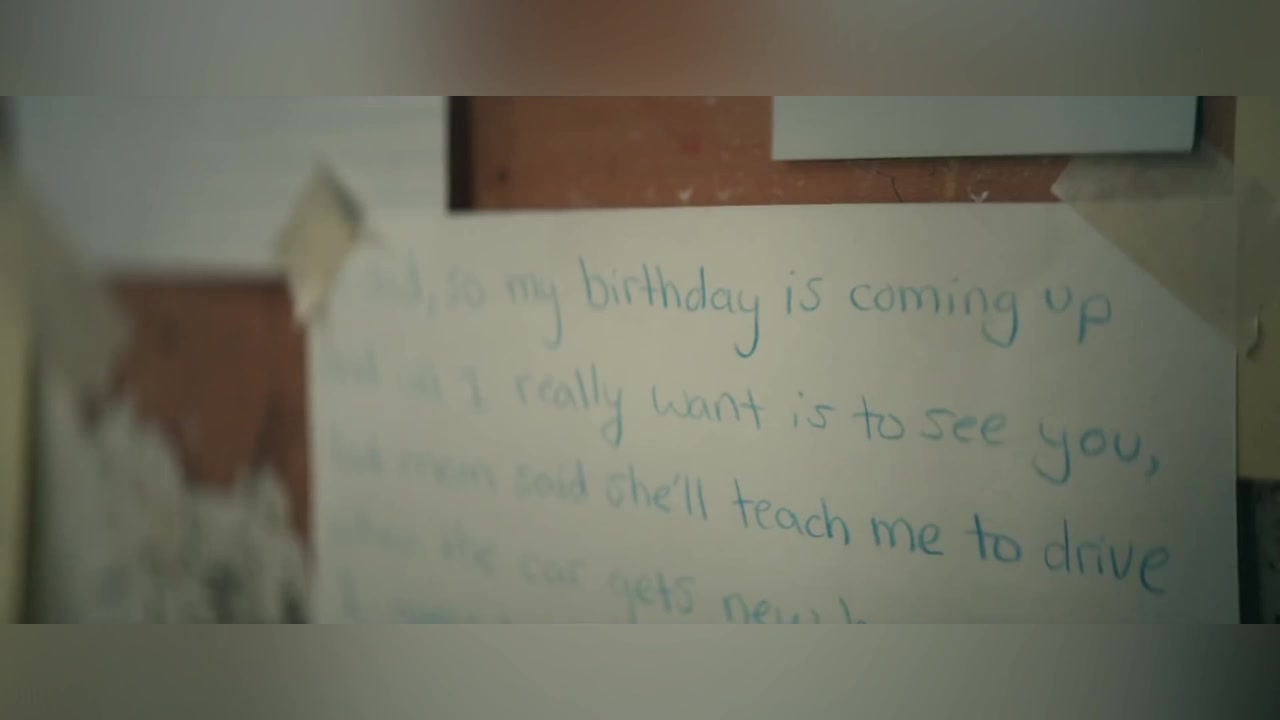 so my birthday is coming up
I really want is to see you,
but mom said she'll teach me to drive
when the car gets new